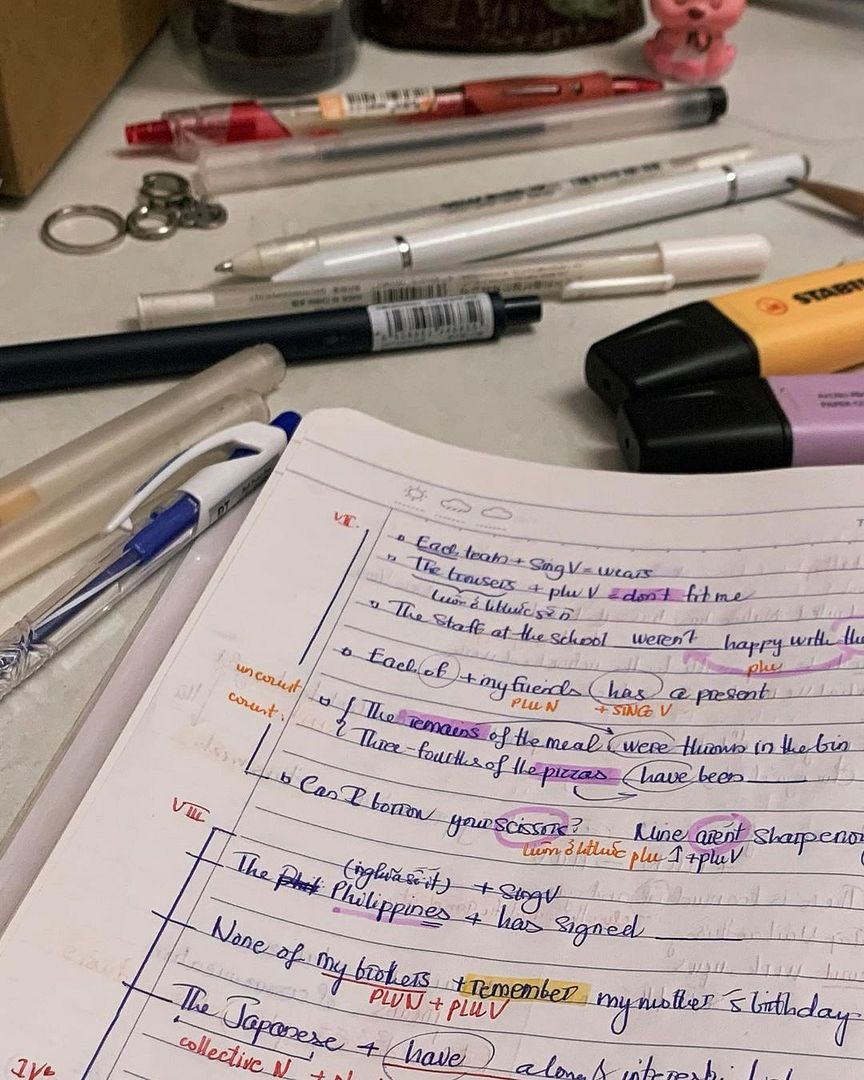 STAB
VII.
Each team + Sing V = wears
The trousers + plu V = don't fit me
luôn ở hthức số n
The Staff at the school weren't happy with the
plu
Each of + my friends has a present
PLU N + SING V
uncount
count.
The remains of the meal were thrown in the bin
Three-fourths of the pizzas have been
Can I borrow your scissors? Mine aren't sharp eno
luôn ở hthức plu + plu V
VIII
(nghĩa số ít)
The Philippines + sing V
+ has signed
None of my brothers + remember my mother's birthday
PLU N + PLU V
The Japanese + have a long
collective N +